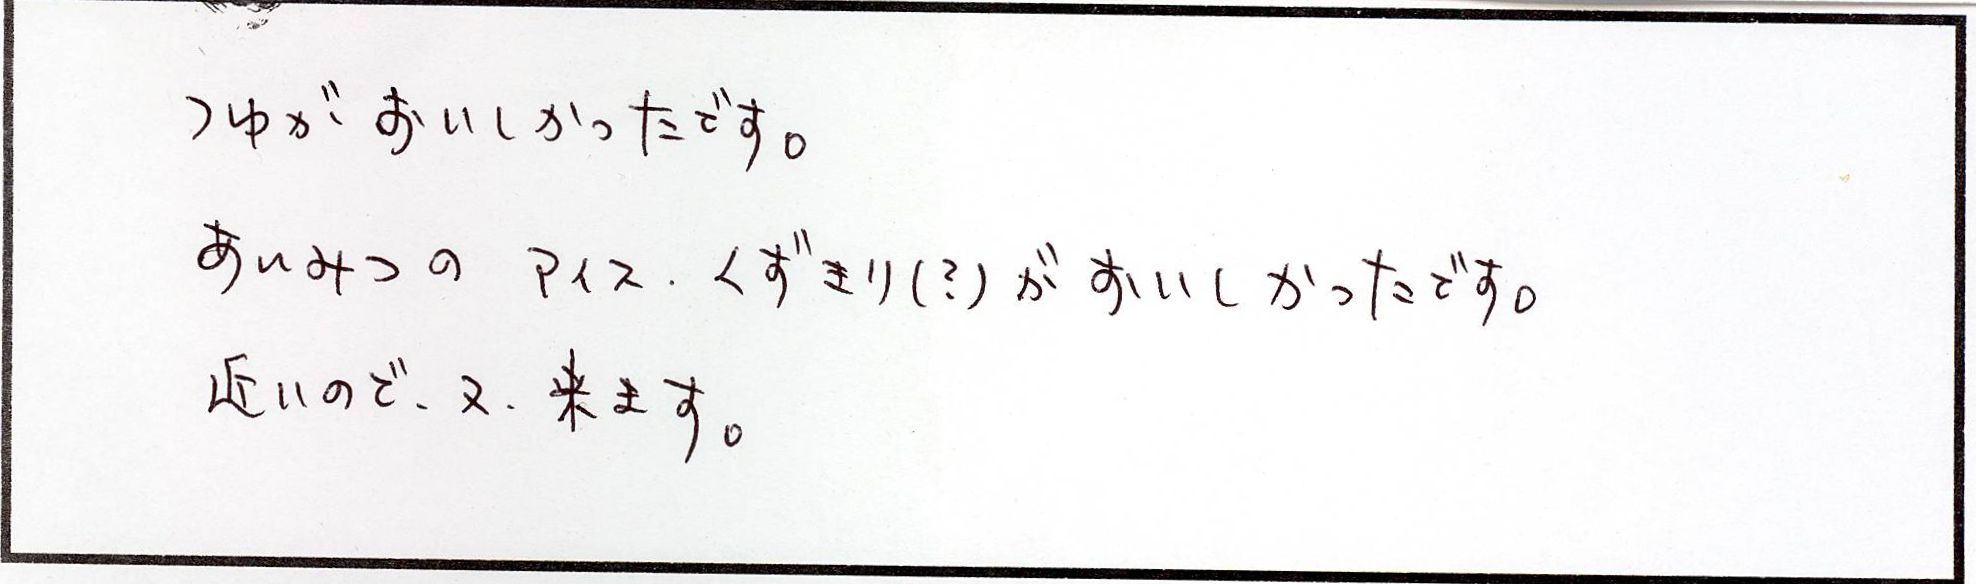 つゆが おいしかったです。
あんみつの アイス.くずきり(?)が おいしかったです。
近いので、又、来ます。